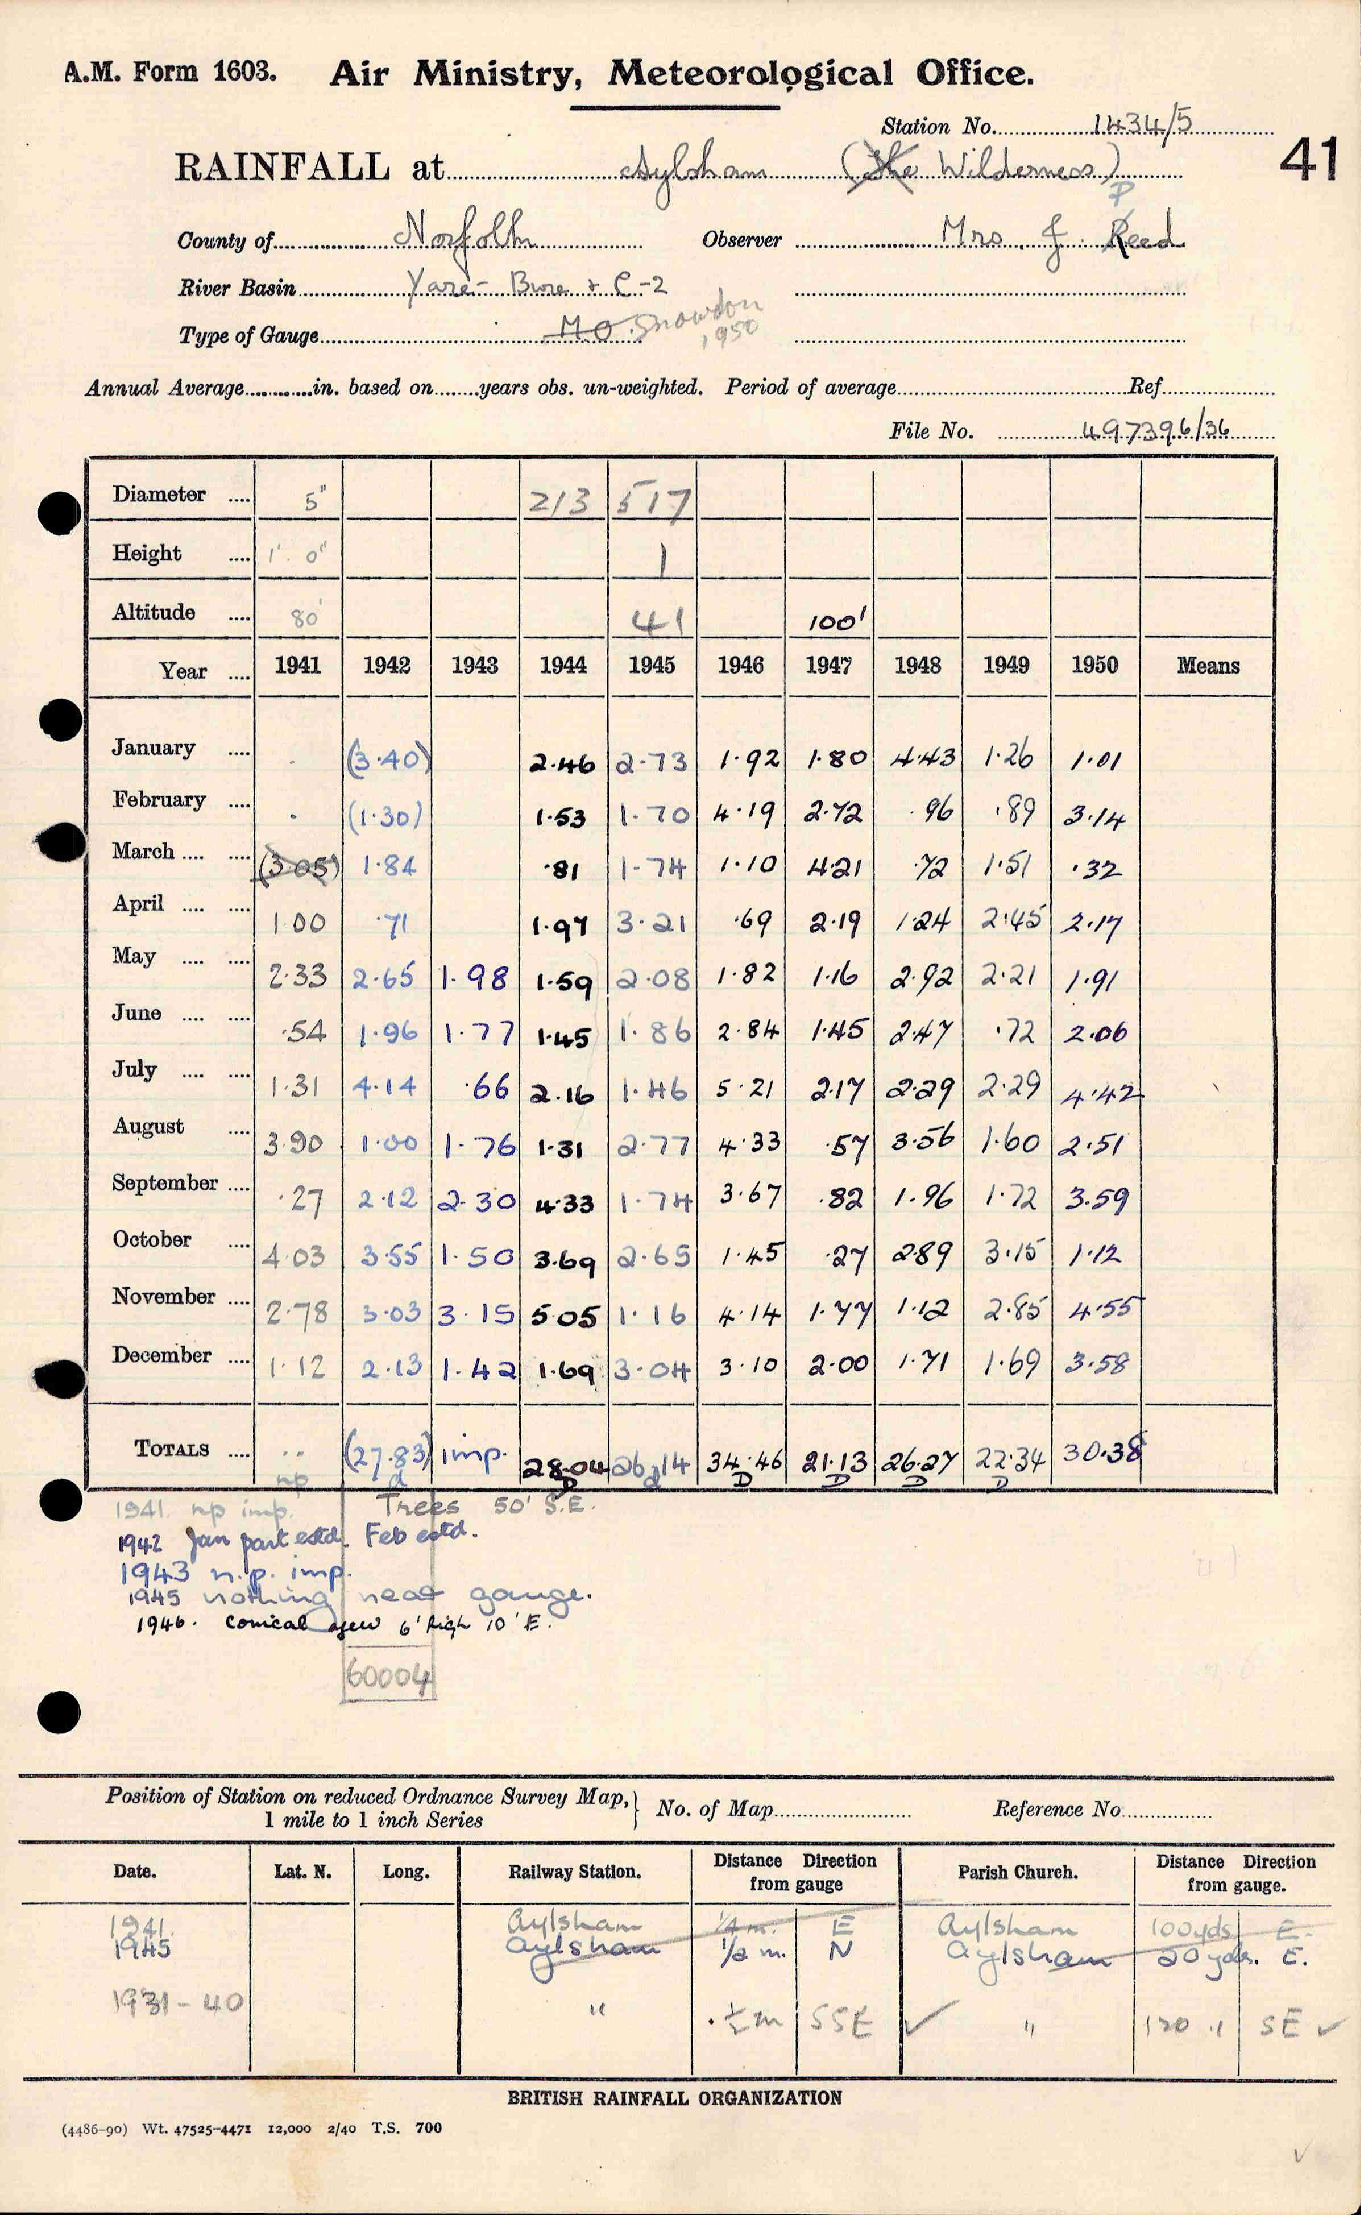 A.M. Form 1603. Air Ministry, Meteorological Office.
Station No. 1434/5
41
RAINFALL at Aylsham (The Wilderness)
County of Norfolk Observer Mrs J. Reed
River Basin Yare - Bure + C-2
Type of Gauge M.O. Snowdon 1950
Annual Average in. based on years obs. un-weighted. Period of average Ref
File No. 497396/36
Diameter 5" 213 517
Height 1' 0" 1
Altitude 80' 41 100'
Year 1941 1942 1943 1944 1945 1946 1947 1948 1949 1950 Means
January (3.40) 2.46 2.73 1.92 1.80 4.43 1.26 1.01
February (1.30) 1.53 1.70 4.19 2.72 .96 .89 3.14
March (3.05) 1.84 .81 1.74 1.10 4.21 .72 1.51 .32
April 1.00 .71 1.97 3.21 .69 2.19 1.24 2.45 2.17
May 2.33 2.65 1.98 1.59 2.08 1.82 1.16 2.92 2.21 1.91
June .54 1.96 1.77 1.45 1.86 2.84 1.45 2.47 .72 2.06
July 1.31 4.14 .66 2.16 1.46 5.21 2.17 2.29 2.29 4.42
August 3.90 1.00 1.76 1.31 2.77 4.33 .57 3.56 1.60 2.51
September .27 2.12 2.30 4.33 1.74 3.67 .82 1.96 1.72 3.59
October 4.03 3.55 1.50 3.69 2.65 1.45 .27 2.89 3.15 1.12
November 2.78 3.03 3.15 5.05 1.16 4.14 1.77 1.12 2.85 4.55
December 1.12 2.13 1.42 1.69 3.04 3.10 2.00 1.71 1.69 3.58
TOTALS .. (27.83) imp. 28.04 26.14 34.46 21.13 26.27 22.34 30.38
np d D d D D D D
1941. np imp. Trees 50' S.E.
1942 Jan part estd. Feb estd.
1943 n.p. imp.
1945 nothing near gauge.
1946. Conical yew 6' high 10' E.
60004
Position of Station on reduced Ordnance Survey Map, No. of Map Reference No.
1 mile to 1 inch Series
Date. Lat. N. Long. Railway Station. Distance Direction from gauge Parish Church. Distance Direction from gauge.
1941 Aylsham 1/4 m. E Aylsham 100 yds E.
1945 Aylsham 1/2 m. N Aylsham 20 yds. E.
1931-40 " 1/2 m SSE ✓ " 120 " SE ✓
BRITISH RAINFALL ORGANIZATION
(4486-90) Wt. 47525-4471 12,000 2/40 T.S. 700